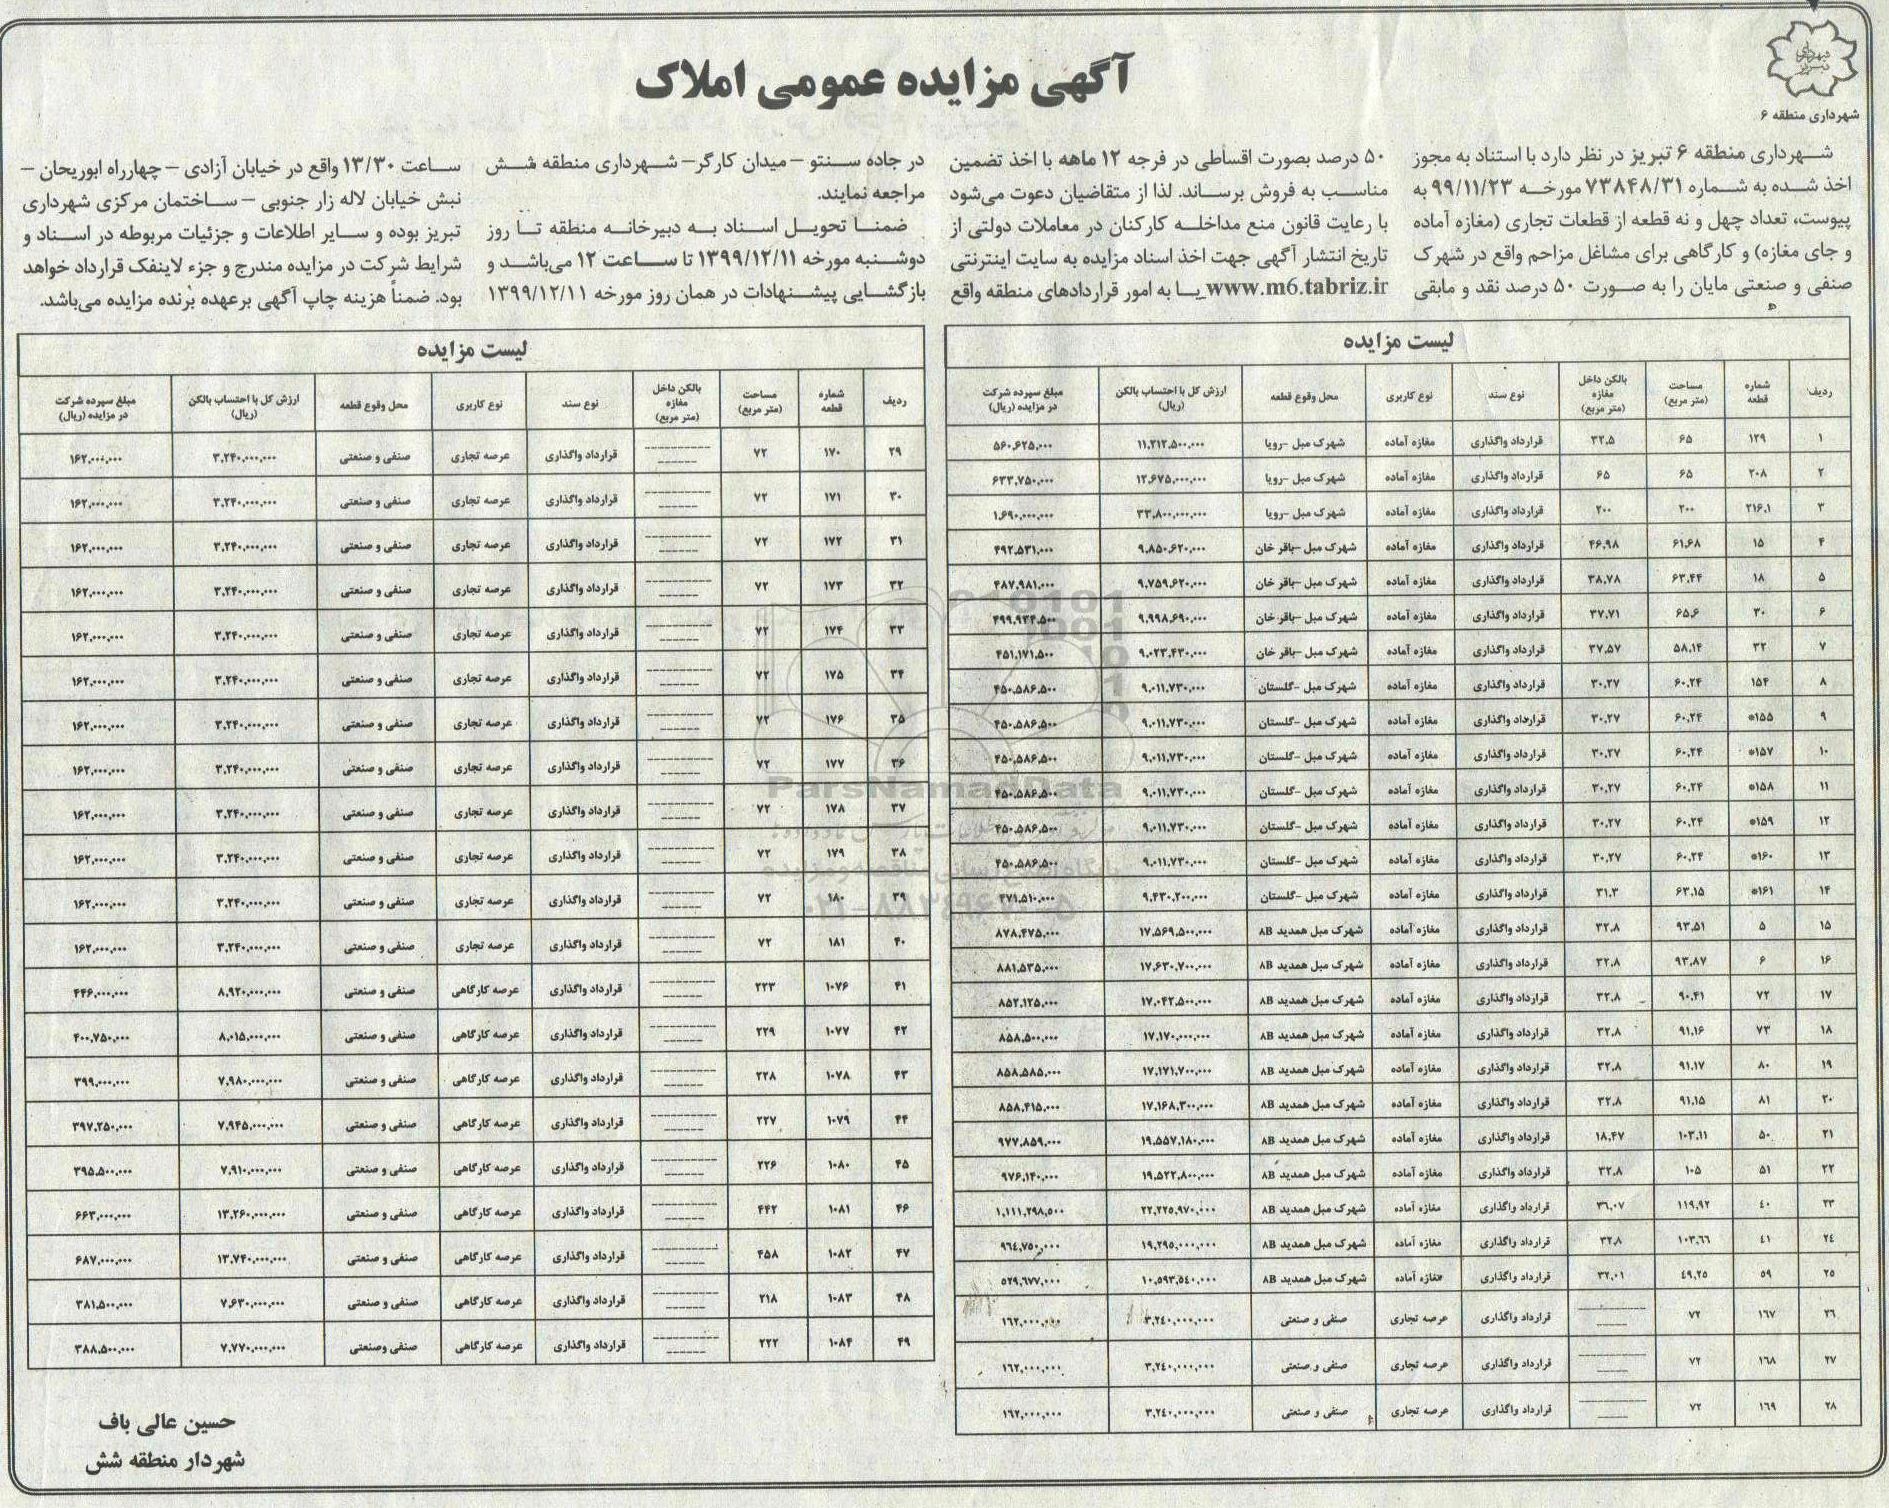 شهرداری تبریز
شهرداری منطقه ۶
آگهی مزایده عمومی املاک
شهرداری منطقه ۶ تبریز در نظر دارد با استناد به مجوز
اخذ شده به شماره ۷۳۸۴۸/۳۱ مورخه ۹۹/۱۱/۲۳ به
پیوست، تعداد چهل و نه قطعه از قطعات تجاری (مغازه آماده
و جای مغازه) و کارگاهی برای مشاغل مزاحم واقع در شهرک
صنفی و صنعتی مایان را به صورت ۵۰ درصد نقد و مابقی
۵۰ درصد بصورت اقساطی در فرجه ۱۲ ماهه با اخذ تضمین
مناسب به فروش برساند. لذا از متقاضیان دعوت می‌شود
با رعایت قانون منع مداخله کارکنان در معاملات دولتی از
تاریخ انتشار آگهی جهت اخذ اسناد مزایده به سایت اینترنتی
www.m6.tabriz.ir یا به امور قراردادهای منطقه واقع
در جاده سنتو – میدان کارگر – شهرداری منطقه شش
مراجعه نمایند.
ضمنا تحویل اسناد به دبیرخانه منطقه تا روز
دوشنبه مورخه ۱۳۹۹/۱۲/۱۱ تا ساعت ۱۲ می‌باشد و
بازگشایی پیشنهادات در همان روز مورخه ۱۳۹۹/۱۲/۱۱
ساعت ۱۳/۳۰ واقع در خیابان آزادی – چهارراه ابوریحان –
نبش خیابان لاله زار جنوبی – ساختمان مرکزی شهرداری
تبریز بوده و سایر اطلاعات و جزئیات مربوطه در اسناد و
شرایط شرکت در مزایده مندرج و جزء لاینفک قرارداد خواهد
بود. ضمناً هزینه چاپ آگهی برعهده برنده مزایده می‌باشد.
لیست مزایده
ردیف شماره قطعه مساحت (متر مربع) بالکن داخل مغازه (متر مربع) نوع سند نوع کاربری محل وقوع قطعه ارزش کل با احتساب بالکن (ریال) مبلغ سپرده شرکت در مزایده (ریال)
۱ ۱۲۹ ۶۵ ۳۲.۵ قرارداد واگذاری مغازه آماده شهرک مبل -رویا ۱۱,۲۱۲,۵۰۰,۰۰۰ ۵۶۰,۶۲۵,۰۰۰
۲ ۲۰۸ ۶۵ ۶۵ قرارداد واگذاری مغازه آماده شهرک مبل -رویا ۱۲,۶۷۵,۰۰۰,۰۰۰ ۶۳۳,۷۵۰,۰۰۰
۳ ۲۱۶.۱ ۲۰۰ ۲۰۰ قرارداد واگذاری مغازه آماده شهرک مبل -رویا ۳۳,۸۰۰,۰۰۰,۰۰۰ ۱,۶۹۰,۰۰۰,۰۰۰
۴ ۱۵ ۶۱.۶۸ ۴۶.۹۸ قرارداد واگذاری مغازه آماده شهرک مبل -باقر خان ۹,۸۵۰,۶۲۰,۰۰۰ ۴۹۲,۵۳۱,۰۰۰
۵ ۱۸ ۶۳.۴۴ ۳۸.۷۸ قرارداد واگذاری مغازه آماده شهرک مبل -باقر خان ۹,۷۵۹,۶۲۰,۰۰۰ ۴۸۷,۹۸۱,۰۰۰
۶ ۳۰ ۶۵.۶ ۳۷.۷۱ قرارداد واگذاری مغازه آماده شهرک مبل -باقر خان ۹,۹۹۸,۶۹۰,۰۰۰ ۴۹۹,۹۳۴,۵۰۰
۷ ۳۲ ۵۸.۱۴ ۳۷.۵۷ قرارداد واگذاری مغازه آماده شهرک مبل -باقر خان ۹,۰۲۳,۴۳۰,۰۰۰ ۴۵۱,۱۷۱,۵۰۰
۸ ۱۵۴ ۶۰.۲۴ ۳۰.۲۷ قرارداد واگذاری مغازه آماده شهرک مبل -گلستان ۹,۰۱۱,۷۳۰,۰۰۰ ۴۵۰,۵۸۶,۵۰۰
۹ ۱۵۵* ۶۰.۲۴ ۳۰.۲۷ قرارداد واگذاری مغازه آماده شهرک مبل -گلستان ۹,۰۱۱,۷۳۰,۰۰۰ ۴۵۰,۵۸۶,۵۰۰
۱۰ ۱۵۷* ۶۰.۲۴ ۳۰.۲۷ قرارداد واگذاری مغازه آماده شهرک مبل -گلستان ۹,۰۱۱,۷۳۰,۰۰۰ ۴۵۰,۵۸۶,۵۰۰
۱۱ ۱۵۸* ۶۰.۲۴ ۳۰.۲۷ قرارداد واگذاری مغازه آماده شهرک مبل -گلستان ۹,۰۱۱,۷۳۰,۰۰۰ ۴۵۰,۵۸۶,۵۰۰
۱۲ ۱۵۹* ۶۰.۲۴ ۳۰.۲۷ قرارداد واگذاری مغازه آماده شهرک مبل -گلستان ۹,۰۱۱,۷۳۰,۰۰۰ ۴۵۰,۵۸۶,۵۰۰
۱۳ ۱۶۰* ۶۰.۲۴ ۳۰.۲۷ قرارداد واگذاری مغازه آماده شهرک مبل -گلستان ۹,۰۱۱,۷۳۰,۰۰۰ ۴۵۰,۵۸۶,۵۰۰
۱۴ ۱۶۱* ۶۳.۱۵ ۳۱.۳ قرارداد واگذاری مغازه آماده شهرک مبل -گلستان ۹,۴۳۰,۲۰۰,۰۰۰ ۴۷۱,۵۱۰,۰۰۰
۱۵ ۵ ۹۳.۵۱ ۳۲.۸ قرارداد واگذاری مغازه آماده شهرک مبل همدید ۸B ۱۷,۵۶۹,۵۰۰,۰۰۰ ۸۷۸,۴۷۵,۰۰۰
۱۶ ۶ ۹۳.۸۷ ۳۲.۸ قرارداد واگذاری مغازه آماده شهرک مبل همدید ۸B ۱۷,۶۳۰,۷۰۰,۰۰۰ ۸۸۱,۵۳۵,۰۰۰
۱۷ ۷۲ ۹۰.۴۱ ۳۲.۸ قرارداد واگذاری مغازه آماده شهرک مبل همدید ۸B ۱۷,۰۴۲,۵۰۰,۰۰۰ ۸۵۲,۱۲۵,۰۰۰
۱۸ ۷۳ ۹۱.۱۶ ۳۲.۸ قرارداد واگذاری مغازه آماده شهرک مبل همدید ۸B ۱۷,۱۷۰,۰۰۰,۰۰۰ ۸۵۸,۵۰۰,۰۰۰
۱۹ ۸۰ ۹۱.۱۷ ۳۲.۸ قرارداد واگذاری مغازه آماده شهرک مبل همدید ۸B ۱۷,۱۷۱,۷۰۰,۰۰۰ ۸۵۸,۵۸۵,۰۰۰
۲۰ ۸۱ ۹۱.۱۵ ۳۲.۸ قرارداد واگذاری مغازه آماده شهرک مبل همدید ۸B ۱۷,۱۶۸,۳۰۰,۰۰۰ ۸۵۸,۴۱۵,۰۰۰
۲۱ ۵۰ ۱۰۳.۱۱ ۱۸.۴۷ قرارداد واگذاری مغازه آماده شهرک مبل همدید ۸B ۱۹,۵۵۷,۱۸۰,۰۰۰ ۹۷۷,۸۵۹,۰۰۰
۲۲ ۵۱ ۱۰۵ ۳۲.۸ قرارداد واگذاری مغازه آماده شهرک مبل همدید ۸B ۱۹,۵۲۲,۸۰۰,۰۰۰ ۹۷۶,۱۴۰,۰۰۰
۲۳ ۴۰ ۱۱۹.۹۲ ۳۶.۰۷ قرارداد واگذاری مغازه آماده شهرک مبل همدید ۸B ۲۲,۲۲۵,۹۷۰,۰۰۰ ۱,۱۱۱,۲۹۸,۵۰۰
۲۴ ۴۱ ۱۰۳.۶۶ ۳۲.۸ قرارداد واگذاری مغازه آماده شهرک مبل همدید ۸B ۱۹,۲۹۵,۰۰۰,۰۰۰ ۹۶۴,۷۵۰,۰۰۰
۲۵ ۵۹ ۴۹.۲۵ ۳۲.۰۱ قرارداد واگذاری مغازه آماده شهرک مبل همدید ۸B ۱۰,۵۹۳,۵۴۰,۰۰۰ ۵۲۹,۶۷۷,۰۰۰
۲۶ ۱۶۷ ۷۲ ---- قرارداد واگذاری عرصه تجاری صنفی و صنعتی ۳,۲۴۰,۰۰۰,۰۰۰ ۱۶۲,۰۰۰,۰۰۰
۲۷ ۱۶۸ ۷۲ ---- قرارداد واگذاری عرصه تجاری صنفی و صنعتی ۳,۲۴۰,۰۰۰,۰۰۰ ۱۶۲,۰۰۰,۰۰۰
۲۸ ۱۶۹ ۷۲ ---- قرارداد واگذاری عرصه تجاری صنفی و صنعتی ۳,۲۴۰,۰۰۰,۰۰۰ ۱۶۲,۰۰۰,۰۰۰
لیست مزایده
ردیف شماره قطعه مساحت (متر مربع) بالکن داخل مغازه (متر مربع) نوع سند نوع کاربری محل وقوع قطعه ارزش کل با احتساب بالکن (ریال) مبلغ سپرده شرکت در مزایده (ریال)
۲۹ ۱۷۰ ۷۲ ---- قرارداد واگذاری عرصه تجاری صنفی و صنعتی ۳,۲۴۰,۰۰۰,۰۰۰ ۱۶۲,۰۰۰,۰۰۰
۳۰ ۱۷۱ ۷۲ ---- قرارداد واگذاری عرصه تجاری صنفی و صنعتی ۳,۲۴۰,۰۰۰,۰۰۰ ۱۶۲,۰۰۰,۰۰۰
۳۱ ۱۷۲ ۷۲ ---- قرارداد واگذاری عرصه تجاری صنفی و صنعتی ۳,۲۴۰,۰۰۰,۰۰۰ ۱۶۲,۰۰۰,۰۰۰
۳۲ ۱۷۳ ۷۲ ---- قرارداد واگذاری عرصه تجاری صنفی و صنعتی ۳,۲۴۰,۰۰۰,۰۰۰ ۱۶۲,۰۰۰,۰۰۰
۳۳ ۱۷۴ ۷۲ ---- قرارداد واگذاری عرصه تجاری صنفی و صنعتی ۳,۲۴۰,۰۰۰,۰۰۰ ۱۶۲,۰۰۰,۰۰۰
۳۴ ۱۷۵ ۷۲ ---- قرارداد واگذاری عرصه تجاری صنفی و صنعتی ۳,۲۴۰,۰۰۰,۰۰۰ ۱۶۲,۰۰۰,۰۰۰
۳۵ ۱۷۶ ۷۲ ---- قرارداد واگذاری عرصه تجاری صنفی و صنعتی ۳,۲۴۰,۰۰۰,۰۰۰ ۱۶۲,۰۰۰,۰۰۰
۳۶ ۱۷۷ ۷۲ ---- قرارداد واگذاری عرصه تجاری صنفی و صنعتی ۳,۲۴۰,۰۰۰,۰۰۰ ۱۶۲,۰۰۰,۰۰۰
۳۷ ۱۷۸ ۷۲ ---- قرارداد واگذاری عرصه تجاری صنفی و صنعتی ۳,۲۴۰,۰۰۰,۰۰۰ ۱۶۲,۰۰۰,۰۰۰
۳۸ ۱۷۹ ۷۲ ---- قرارداد واگذاری عرصه تجاری صنفی و صنعتی ۳,۲۴۰,۰۰۰,۰۰۰ ۱۶۲,۰۰۰,۰۰۰
۳۹ ۱۸۰ ۷۲ ---- قرارداد واگذاری عرصه تجاری صنفی و صنعتی ۳,۲۴۰,۰۰۰,۰۰۰ ۱۶۲,۰۰۰,۰۰۰
۴۰ ۱۸۱ ۷۲ ---- قرارداد واگذاری عرصه تجاری صنفی و صنعتی ۳,۲۴۰,۰۰۰,۰۰۰ ۱۶۲,۰۰۰,۰۰۰
۴۱ ۱۰۷۶ ۲۲۳ ---- قرارداد واگذاری عرصه کارگاهی صنفی و صنعتی ۸,۹۲۰,۰۰۰,۰۰۰ ۴۴۶,۰۰۰,۰۰۰
۴۲ ۱۰۷۷ ۲۲۹ ---- قرارداد واگذاری عرصه کارگاهی صنفی و صنعتی ۸,۰۱۵,۰۰۰,۰۰۰ ۴۰۰,۷۵۰,۰۰۰
۴۳ ۱۰۷۸ ۲۲۸ ---- قرارداد واگذاری عرصه کارگاهی صنفی و صنعتی ۷,۹۸۰,۰۰۰,۰۰۰ ۳۹۹,۰۰۰,۰۰۰
۴۴ ۱۰۷۹ ۲۲۷ ---- قرارداد واگذاری عرصه کارگاهی صنفی و صنعتی ۷,۹۴۵,۰۰۰,۰۰۰ ۳۹۷,۲۵۰,۰۰۰
۴۵ ۱۰۸۰ ۲۲۶ ---- قرارداد واگذاری عرصه کارگاهی صنفی و صنعتی ۷,۹۱۰,۰۰۰,۰۰۰ ۳۹۵,۵۰۰,۰۰۰
۴۶ ۱۰۸۱ ۴۴۲ ---- قرارداد واگذاری عرصه کارگاهی صنفی و صنعتی ۱۳,۲۶۰,۰۰۰,۰۰۰ ۶۶۳,۰۰۰,۰۰۰
۴۷ ۱۰۸۲ ۴۵۸ ---- قرارداد واگذاری عرصه کارگاهی صنفی و صنعتی ۱۳,۷۴۰,۰۰۰,۰۰۰ ۶۸۷,۰۰۰,۰۰۰
۴۸ ۱۰۸۳ ۲۱۸ ---- قرارداد واگذاری عرصه کارگاهی صنفی و صنعتی ۷,۶۳۰,۰۰۰,۰۰۰ ۳۸۱,۵۰۰,۰۰۰
۴۹ ۱۰۸۴ ۲۲۲ ---- قرارداد واگذاری عرصه کارگاهی صنفی وصنعتی ۷,۷۷۰,۰۰۰,۰۰۰ ۳۸۸,۵۰۰,۰۰۰
حسین عالی باف
شهردار منطقه شش
ParsNamadData